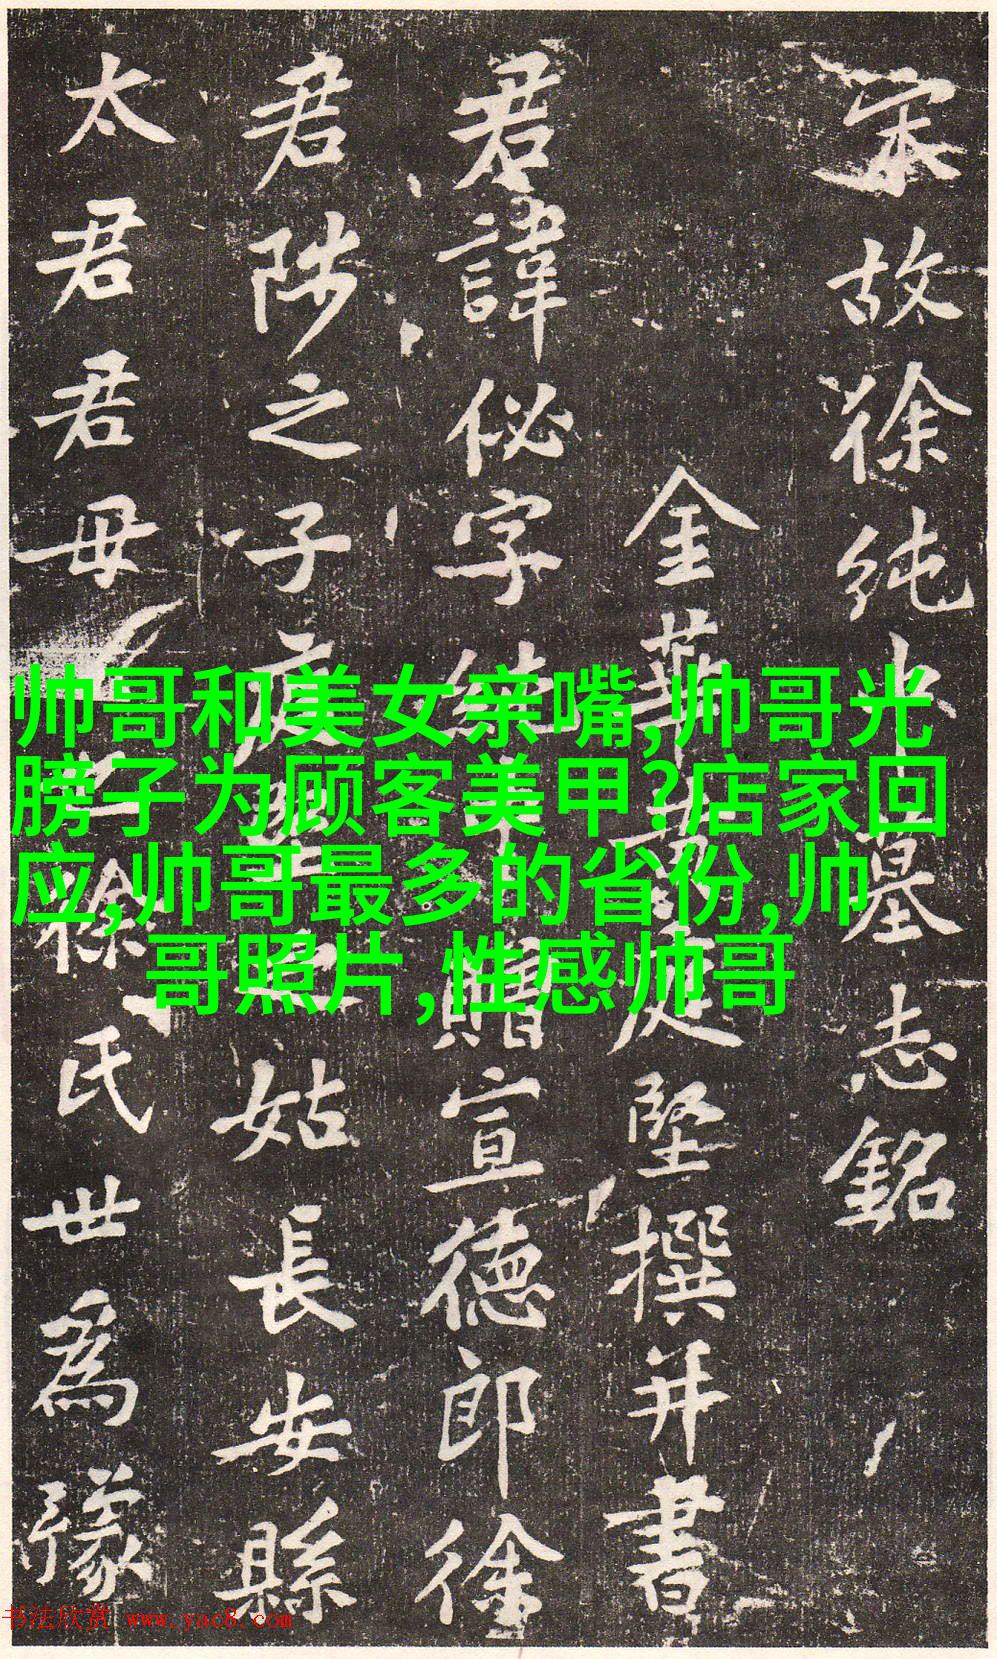 宋故徐純中墓志銘
金華庭堅撰并書
君諱佖字贈宣德郎徐
君陟之子姑長安縣
太君君母徐氏世為豫
帅哥和美女亲嘴,帅哥光
膀子为顾客美甲?店家回
应,帅哥最多的省份,帅
哥照片,性感帅哥
书法欣赏 www.yac8.com